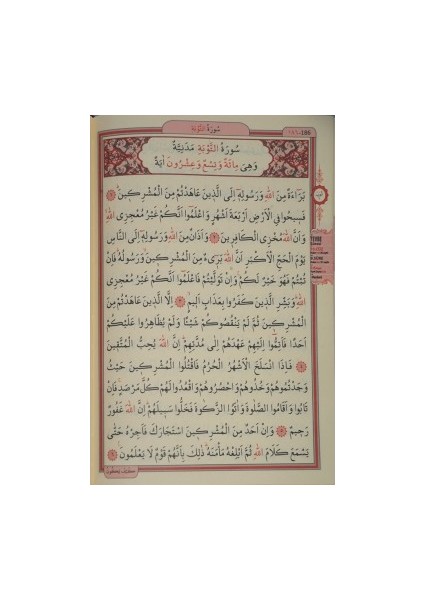 سُورَةُ التَّوْبَةِ
١٨٦ - 186
سُورَةُ التَّوْبَةِ مَدَنِيَّةٌ
وَهِيَ مِائَةٌ وَتِسْعٌ وَعِشْرُونَ اٰيَةً
بَرَٓاءَةٌ مِنَ اللّٰهِ وَرَسُولِهٖٓ اِلَى الَّذٖينَ عَاهَدْتُمْ مِنَ الْمُشْرِكٖينَ
فَسٖيحُوا فِي الْاَرْضِ اَرْبَعَةَ اَشْهُرٍ وَاعْلَمُٓوا اَنَّكُمْ غَيْرُ مُعْجِزِي اللّٰهِ
وَاَنَّ اللّٰهَ مُخْزِي الْكَافِرٖينَ وَاَذَانٌ مِنَ اللّٰهِ وَرَسُولِهٖٓ اِلَى النَّاسِ
يَوْمَ الْحَجِّ الْاَكْبَرِ اَنَّ اللّٰهَ بَرٖٓيءٌ مِنَ الْمُشْرِكٖينَ وَرَسُولُهُ فَاِنْ
تُبْتُمْ فَهُوَ خَيْرٌ لَكُمْ وَاِنْ تَوَلَّيْتُمْ فَاعْلَمُٓوا اَنَّكُمْ غَيْرُ مُعْجِزِي
اللّٰهِ وَبَشِّرِ الَّذٖينَ كَفَرُوا بِعَذَابٍ اَلٖيمٍ اِلَّا الَّذٖينَ عَاهَدْتُمْ مِنَ
الْمُشْرِكٖينَ ثُمَّ لَمْ يَنْقُصُوكُمْ شَيْـًٔا وَلَمْ يُظَاهِرُوا عَلَيْكُمْ
اَحَدًا فَاَتِمُّٓوا اِلَيْهِمْ عَهْدَهُمْ اِلٰى مُدَّتِهِمْ اِنَّ اللّٰهَ يُحِبُّ الْمُتَّقٖينَ
فَاِذَا انْسَلَخَ الْاَشْهُرُ الْحُرُمُ فَاقْتُلُوا الْمُشْرِكٖينَ حَيْثُ
وَجَدْتُمُوهُمْ وَخُذُوهُمْ وَاحْصُرُوهُمْ وَاقْعُدُوا لَهُمْ كُلَّ مَرْصَدٍ فَاِنْ
تَابُوا وَاَقَامُوا الصَّلٰوةَ وَاٰتَوُا الزَّكٰوةَ فَخَلُّوا سَبٖيلَهُمْ اِنَّ اللّٰهَ غَفُورٌ
رَحٖيمٌ وَاِنْ اَحَدٌ مِنَ الْمُشْرِكٖينَ اسْتَجَارَكَ فَاَجِرْهُ حَتّٰى
يَسْمَعَ كَلَامَ اللّٰهِ ثُمَّ اَبْلِغْهُ مَأْمَنَهُ ذٰلِكَ بِاَنَّهُمْ قَوْمٌ لَا يَعْلَمُونَ